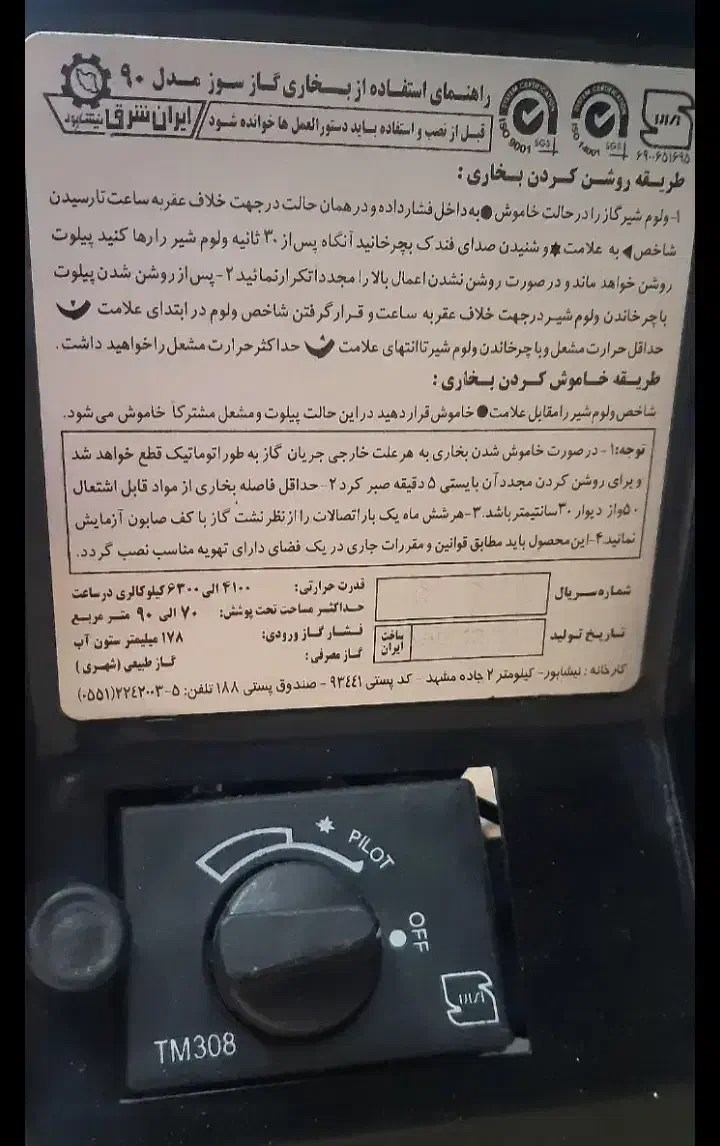 راهنمای استفاده از بخاری گاز سوز مدل ۹۰
ایران شرق نیشابور
قبل از نصب و استفاده باید دستورالعمل ها خوانده شود
SYSTEM CERTIFICATION
ISO 9001
SGS
SYSTEM CERTIFICATION
SGS
۶۹۰۰۶۵۱۶۹۵
طریقه روشن کردن بخاری :
۱-ولوم شیر گاز را در حالت خاموش ●به داخل فشار داده و در همان حالت در جهت خلاف عقربه ساعت تا رسیدن
شاخص ◀ به علامت ✷ و شنیدن صدای فندک بچرخانید آنگاه پس از ۳۰ ثانیه ولوم شیر را رها کنید پیلوت
روشن خواهد ماند و در صورت روشن نشدن اعمال بالا را مجددا تکرار نمائید ۲-پس از روشن شدن پیلوت
با چرخاندن ولوم شیر در جهت خلاف عقربه ساعت و قرار گرفتن شاخص ولوم در ابتدای علامت
حداقل حرارت مشعل و با چرخاندن ولوم شیر تا انتهای علامت حداکثر حرارت مشعل را خواهید داشت .
طریقه خاموش کردن بخاری :
شاخص ولوم شیر را مقابل علامت ● خاموش قرار دهید در این حالت پیلوت و مشعل مشترکاً خاموش می شود.
توجه:۱- در صورت خاموش شدن بخاری به هر علت خارجی جریان گاز به طور اتوماتیک قطع خواهد شد
و برای روشن کردن مجدد آن بایستی ۵ دقیقه صبر کرد ۲-حداقل فاصله بخاری از مواد قابل اشتعال
۵۰و از دیوار ۳۰سانتیمتر باشد.۳-هر شش ماه یک بار اتصالات را از نظر نشت گاز با کف صابون آزمایش
نمائید.۴-این محصول باید مطابق قوانین و مقررات جاری در یک فضای دارای تهویه مناسب نصب گردد.
شماره سریال
تاریخ تولید
ساخت ایران
قدرت حرارتی: ۴۱۰۰ الی ۶۳۰۰ کیلوکالری در ساعت
حداکثر مساحت تحت پوشش: ۷۰ الی ۹۰ متر مربع
فشار گاز ورودی: ۱۷۸ میلیمتر ستون آب
گاز مصرفی: گاز طبیعی (شهری)
کارخانه : نیشابور- کیلومتر ۲ جاده مشهد - کد پستی ۹۳۴۴۱ - صندوق پستی ۱۸۸ تلفن: ۵-۲۲۴۲۰۰۳(۰۵۵۱)
PILOT
OFF
TM308